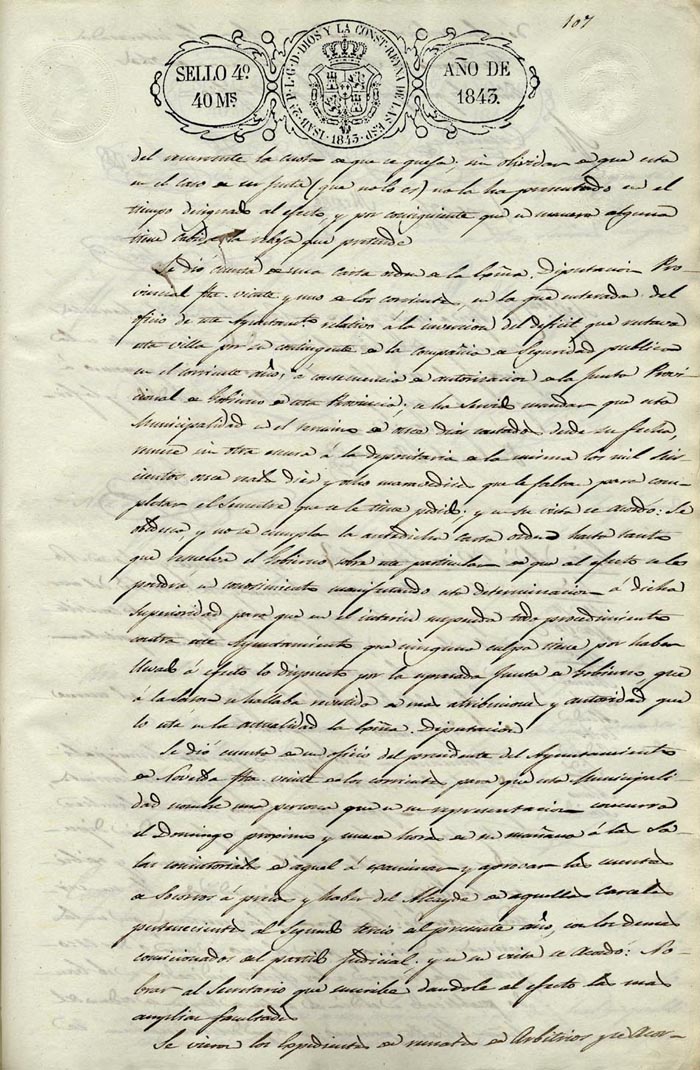 107
SELLO 4º
40 Ms
ISAB. 2ª P. L. G. D. DIOS Y LA CONST. REYNA DE LAS ESP.
1843.
AÑO DE
1843.
del recurrente la cuota de que se queja, sin olvidar de que esta
en el caso de ser justa (que no lo es) no la ha presentado en el
tiempo designado al efecto, y por consiguiente que de manera alguna
tiene cabida la rebaja que pretende
Se dió cuenta de una carta orden de la Exma. Diputacion Pro-
vincial fha. veinte y uno de los corrientes, en la que enterada del
oficio de este Ayuntamto. relativo á la inversion del deficit que
esta villa por su contingente de la compañia de Seguridad publica
en el corriente año, á consecuencia de autorizacion de la Junta Provin-
cial de Gobierno de esta Provincia; se ha servido mandar que esta
Municipalidad en el termino de once dias contados desde su fecha,
sin otra escusa á la depositaria de la misma los mil seis-
cientos once reales diez y ocho maravedises que le faltan para com-
pletar el Semestre que se le tiene pedido; y en su vista se acordó: Se
obedezca y no se cumpla la antedicha carta orden hasta tanto
que resuelva el Gobierno sobre este particular de que al efecto se le
pondra en conocimiento manifestando esta determinacion á dicha
Superioridad para que en el interin suspenda todo procedimiento
contra este Ayuntamiento que ninguna culpa tiene por haber
llevado á efecto lo dispuesto por la espresada Junta de Gobierno que
á la sazon se hallaba revestida de mas atribuciones y autoridad que
lo esta en la actualidad la Exma. Diputacion
Se dió cuenta de un oficio del presidente del Ayuntamiento
de Novelda fha. veinte de los corrientes para que esta Municipali-
dad nombre una persona que en su representacion concurra
el Domingo proximo y nueve horas de su mañana á las Sa-
las consistoriales de aquel á examinar y aprovar las cuentas
de Socorros á presos y haber del Alcayde de aquellas carceles
pertenecientes al Segundo tercio del presente año, con los demas
comisionados del partido judicial: y en su vista se Acordó: Nom-
brar al Secretario que suscribe dandole al efecto las mas
amplias facultades
Se vieron los Expedientes de remates de Arbitrios y se Acor-